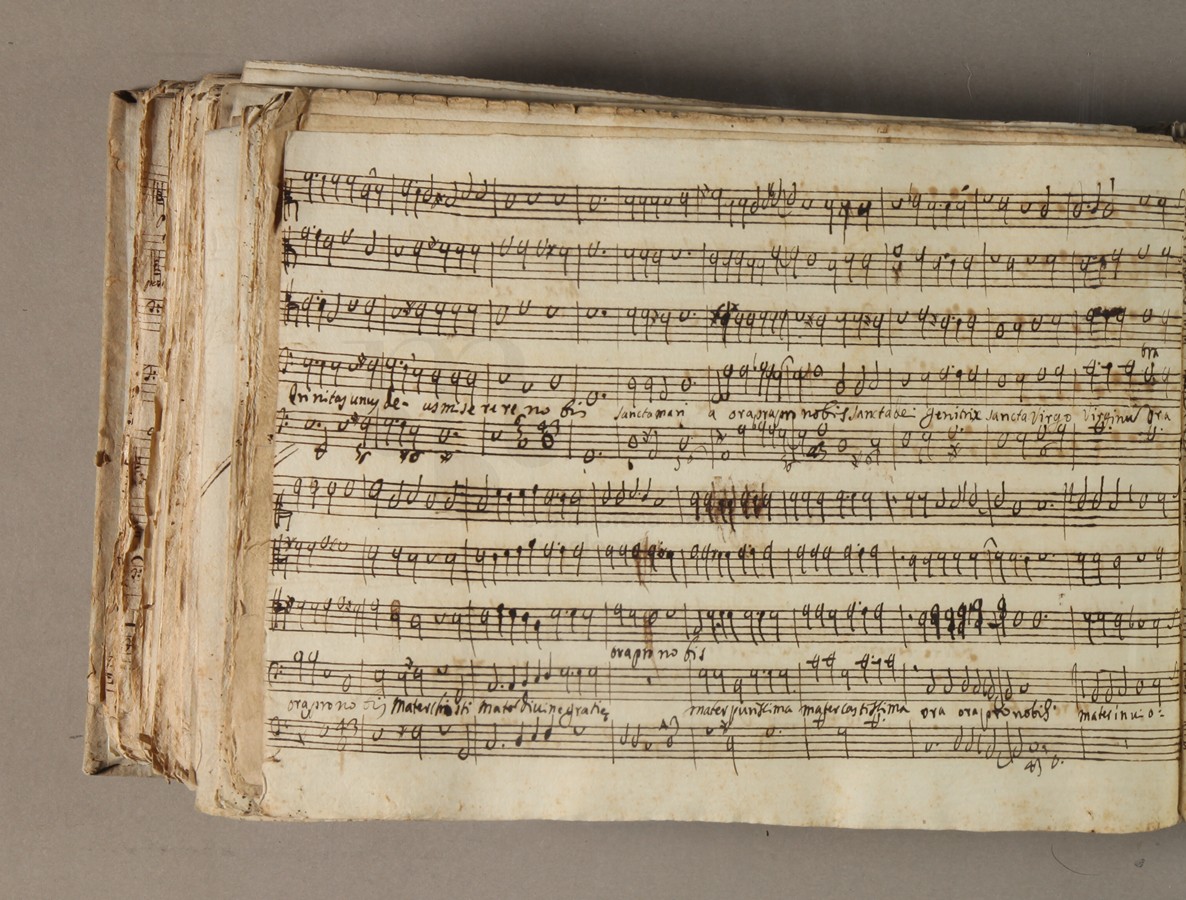 ora
Trinitas unus de- us miserere no bis sancta mari a ora ora pro nobis. sancta dei genitrix sancta virgo virginum Ora
ora pro no bis
ora pro no bis Mater christi Mater divine gratię mater purissima mater castissima ora ora pro nobis. mater invio-